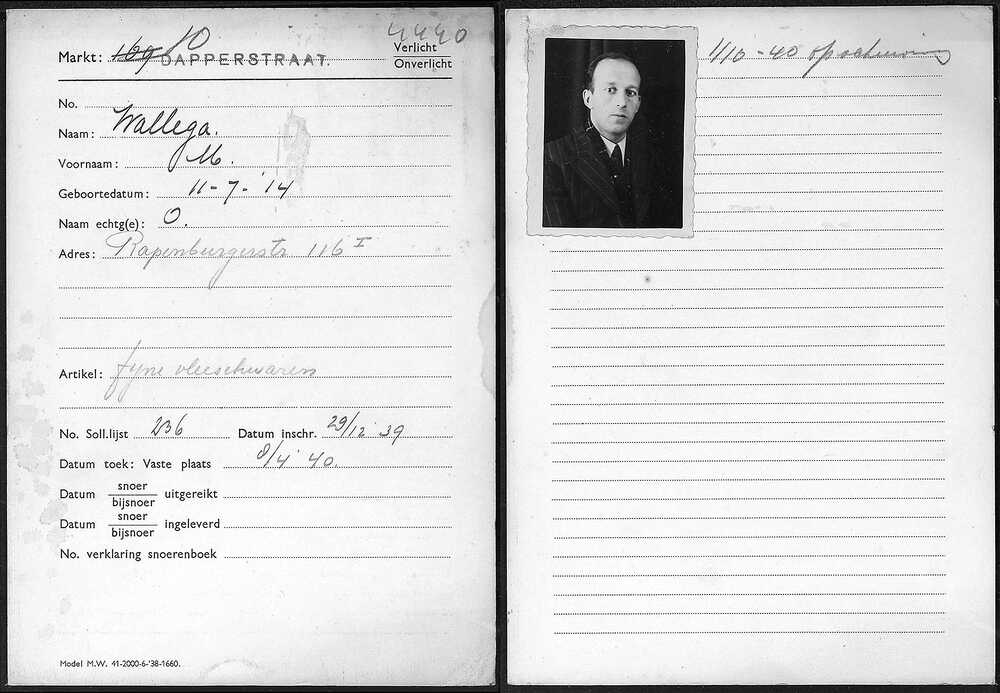 4440
Markt: 169 10 DAPPERSTRAAT.
Verlicht
Onverlicht
No.
Naam: Wallega.
Voornaam: M.
Geboortedatum: 11-7-'14
Naam echtg(e): O.
Adres: Rapenburgerstr 116 I
Artikel: fyne vleeschwaren
No. Soll.lijst 236 Datum inschr. 29/12 '39
Datum toek: Vaste plaats 8/4 '40.
Datum snoer
bijsnoer uitgereikt
Datum snoer
bijsnoer ingeleverd
No. verklaring snoerenboek
Model M.W. 41-2000-6-'38-1660.
1/10-40